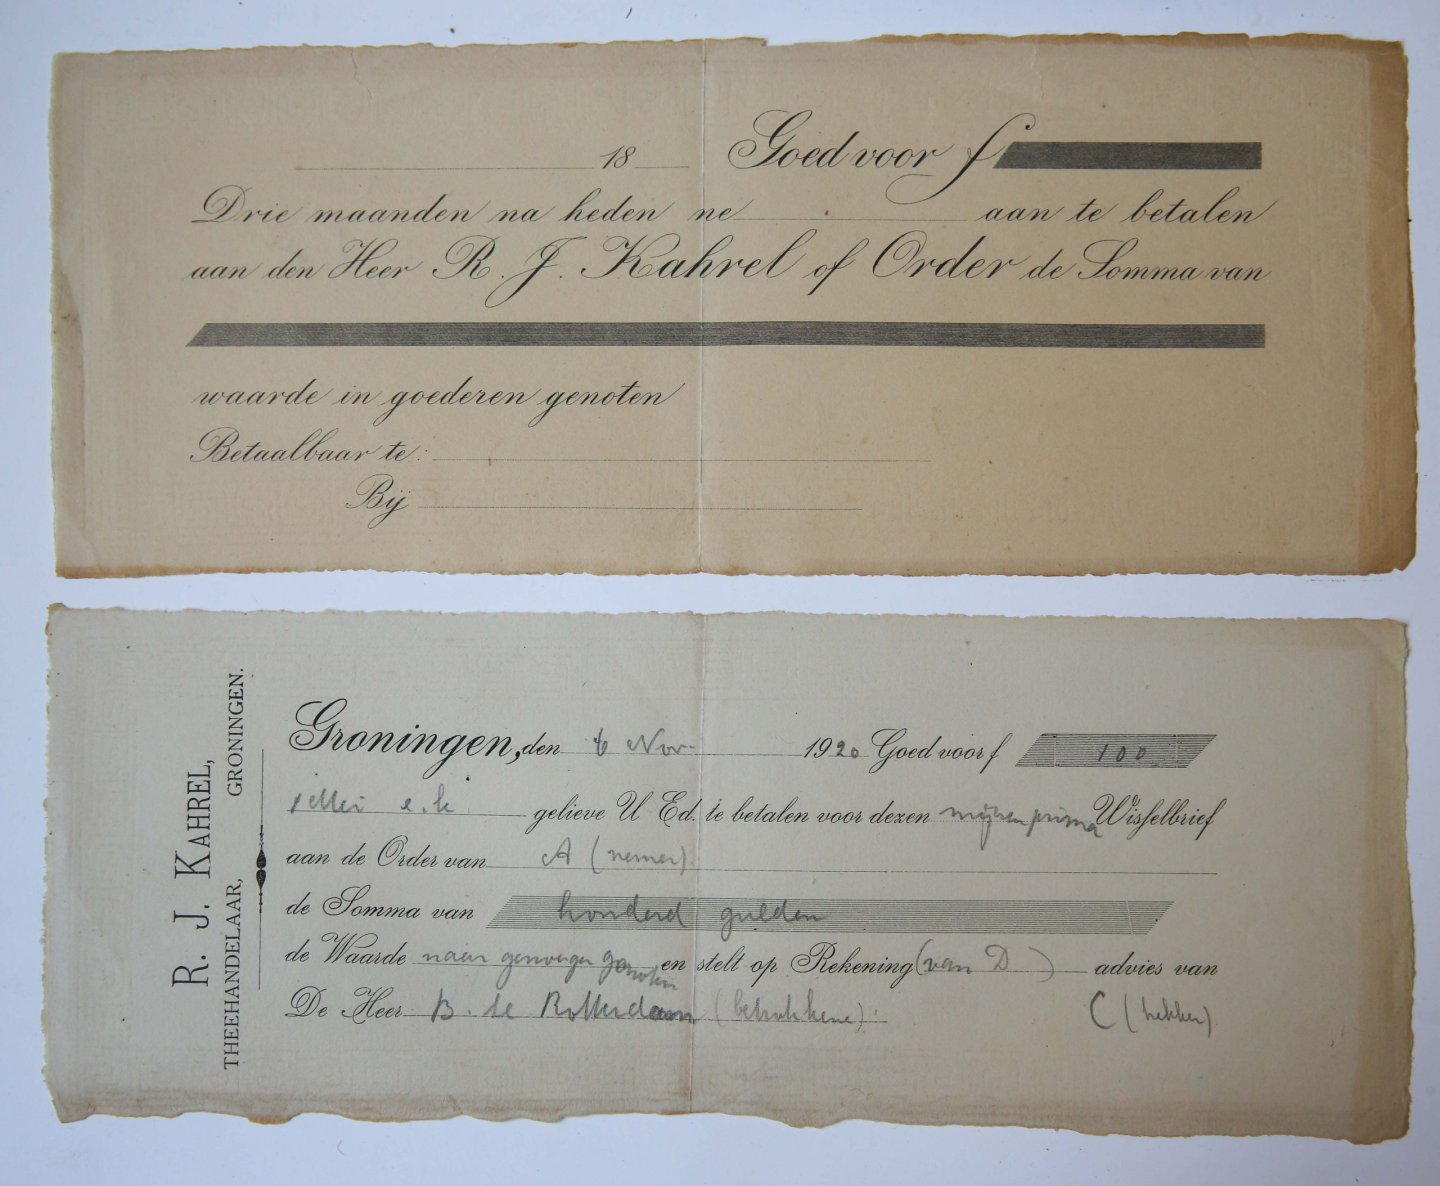 18 Goed voor f
Drie maanden na heden ne aan te betalen
aan den Heer R. J. Kahrel of Order de Somma van
waarde in goederen genoten
Betaalbaar te:
Bij
R. J. KAHREL,
THEEHANDELAAR, GRONINGEN.
Groningen, den 6 Nov. 1920 Goed voor f 100
1 Mei e.k. gelieve U Ed. te betalen voor dezen mijnen prima Wisselbrief
aan de Order van A (nemer).
de Somma van honderd gulden
de Waarde naar genoegen genoten en stelt op Rekening (van D) advies van
De Heer B. te Rotterdam (betrokkene). C (trekker)